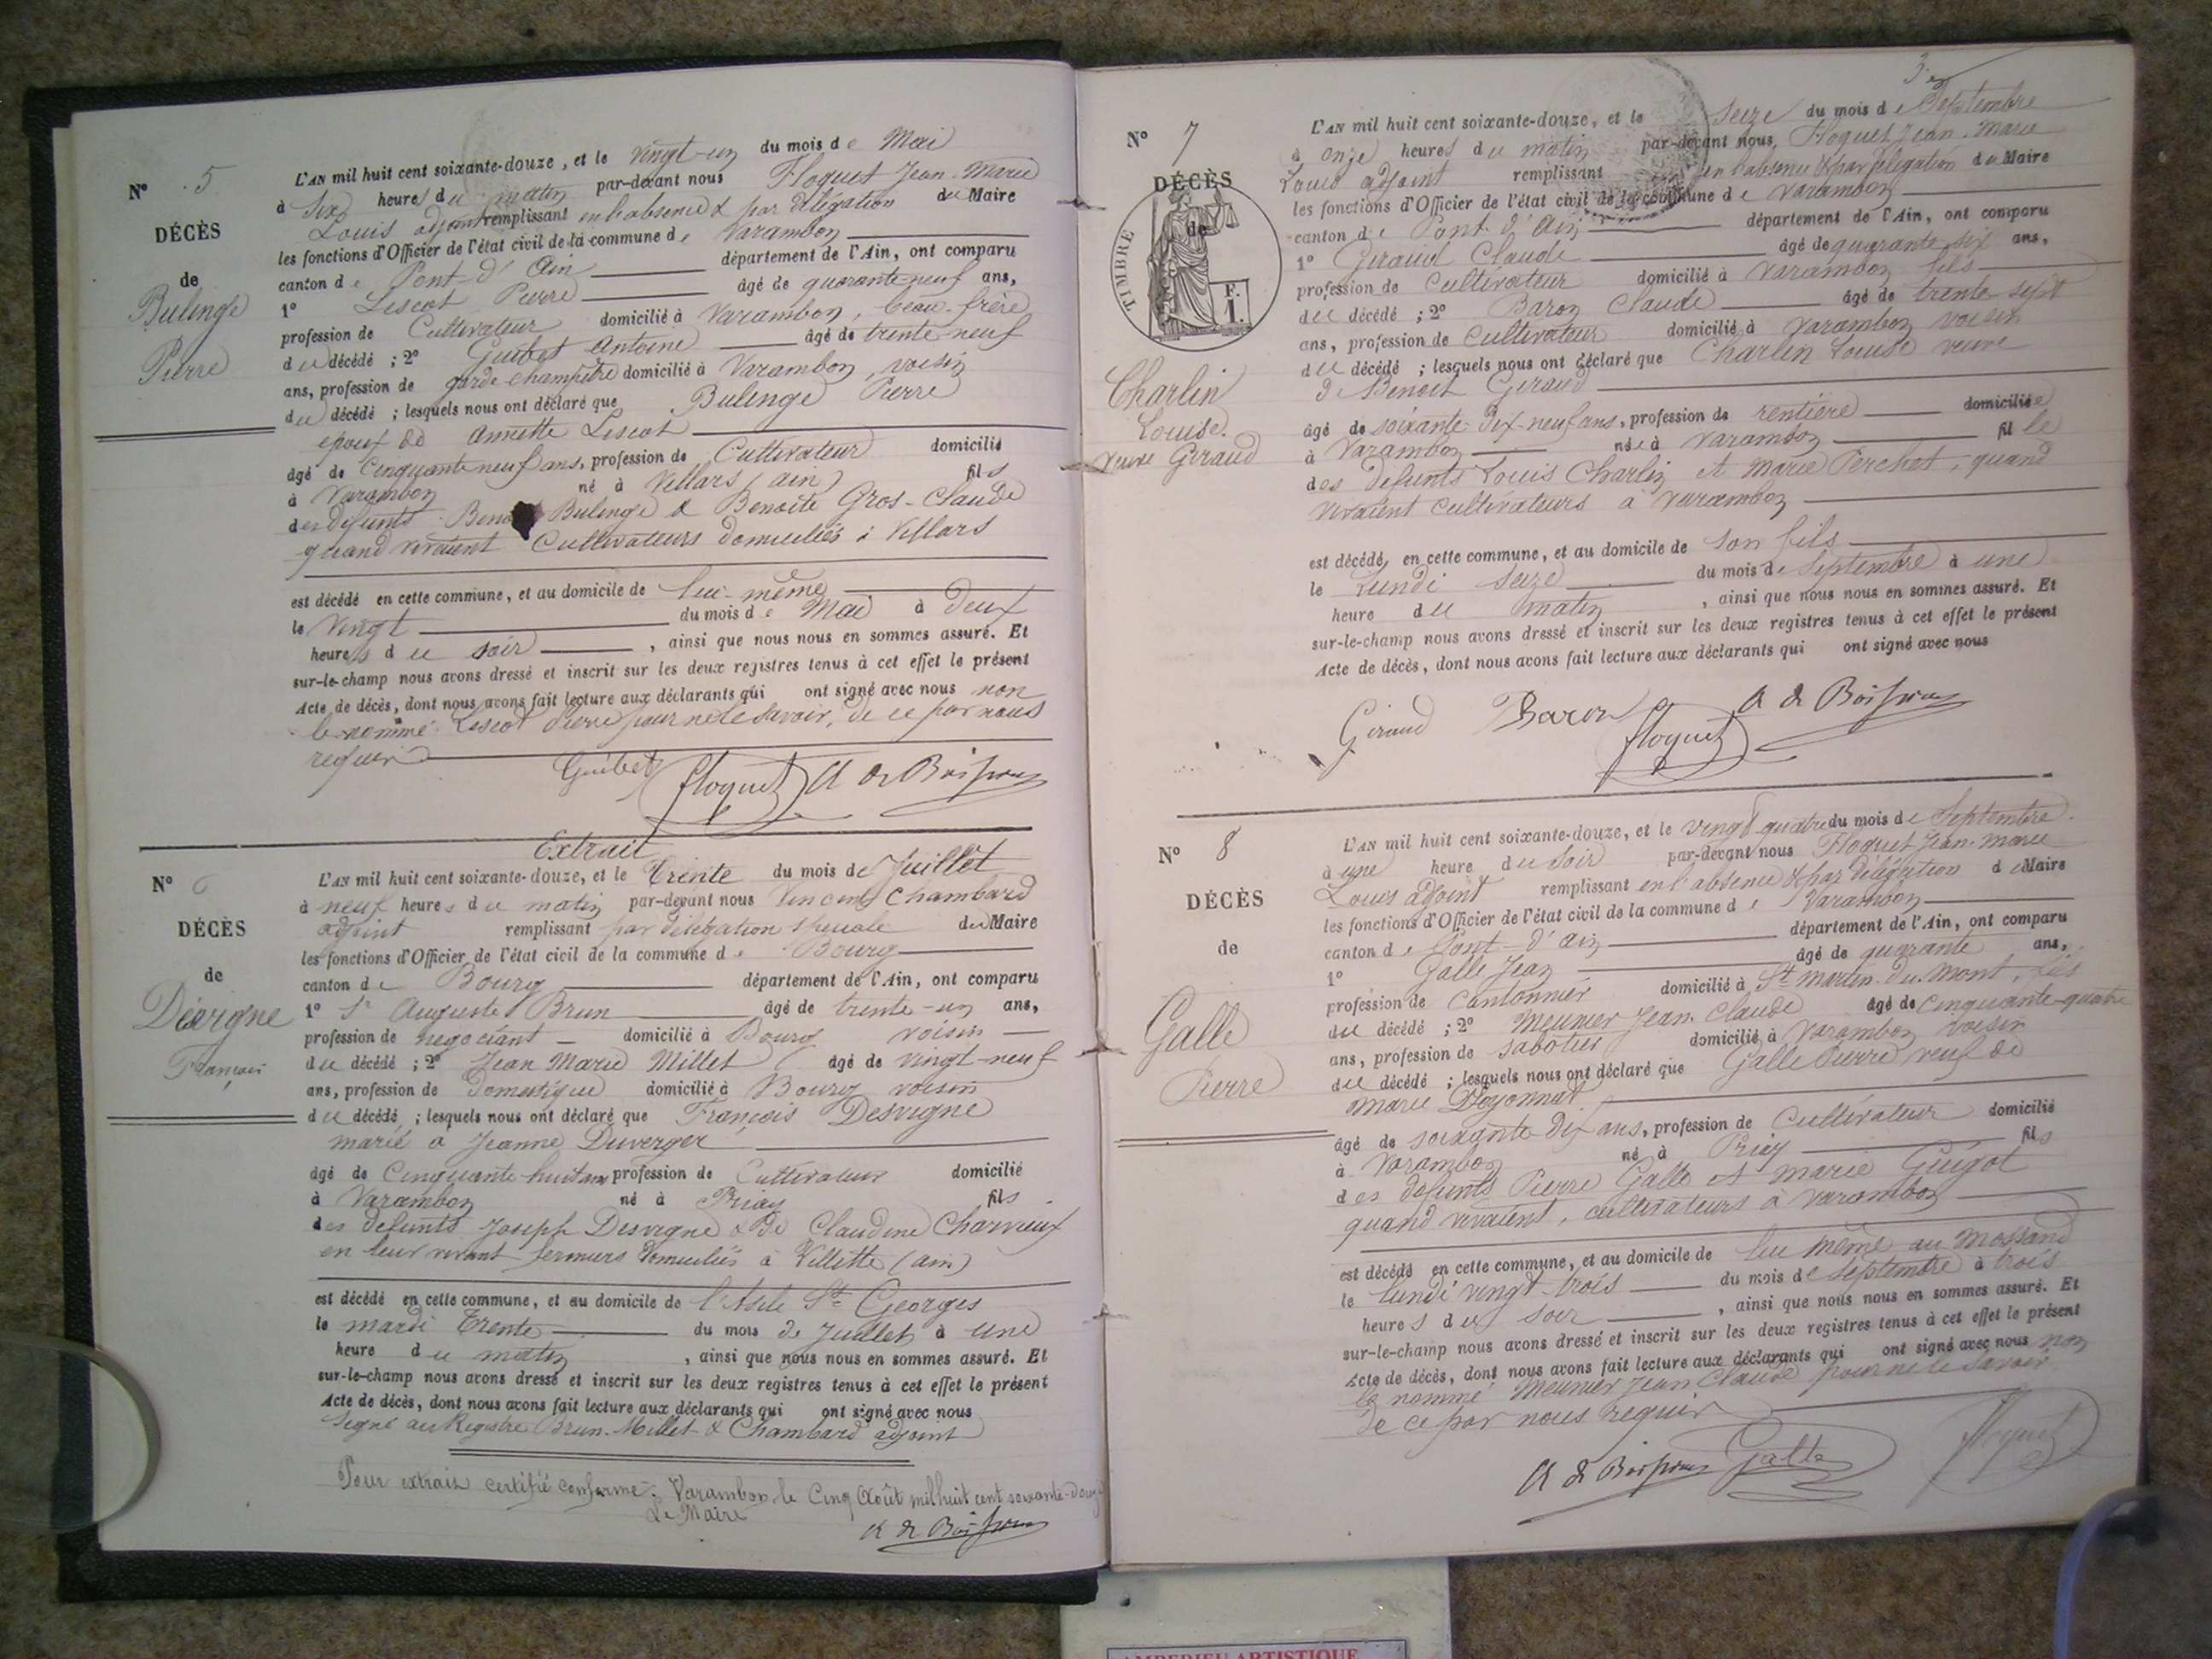 N° 5
DÉCÈS
de
Bulinge
Pierre
L'AN mil huit cent soixante-douze, et le vingt-un du mois de Mai
à six heures du matin par-devant nous Floquet Jean-Marie
Louis adjoint remplissant en l'absence & par délégation du Maire
les fonctions d'Officier de l'état civil de la commune de Varambon
canton de Pont-d'Ain département de l'Ain, ont comparu
1° Lescot Pierre âgé de quarante-neuf ans,
profession de Cultivateur domicilié à Varambon, beau-frère
du décédé ; 2° Guibet Antoine âgé de trente-neuf
ans, profession de garde-champêtre domicilié à Varambon, voisin
du décédé ; lesquels nous ont déclaré que Bulinge Pierre
époux de Annette Lescot
âgé de Cinquante neuf ans, profession de Cultivateur domicilié
à Varambon né à Villars (ain) fils
des défunts Benoit Bulinge & Benoite Gros-Claude
quand vivaient Cultivateurs domiciliés à Villars
est décédé en cette commune, et au domicile de lui-même
le vingt du mois de Mai à deux
heures du soir, ainsi que nous nous en sommes assuré. Et
sur-le-champ nous avons dressé et inscrit sur les deux registres tenus à cet effet le présent
Acte de décès, dont nous avons fait lecture aux déclarants qui ont signé avec nous non
le nommé Lescot Pierre pour ne le savoir, de ce par nous
requis
Guibet Floquet A de Boissieu
N° 6
DÉCÈS
de
Desvigne
François
Extrait
L'AN mil huit cent soixante-douze, et le Trente du mois de Juillet
à neuf heures du matin par-devant nous Vincent Chambard
adjoint remplissant par délégation spéciale du Maire
les fonctions d'Officier de l'état civil de la commune de Bourg
canton de Bourg département de l'Ain, ont comparu
1° Sr Auguste Brun âgé de trente-un ans,
profession de négociant domicilié à Bourg voisin
du décédé ; 2° Jean Marie Millet âgé de vingt-neuf
ans, profession de Domestique domicilié à Bourg voisin
du décédé ; lesquels nous ont déclaré que François Desvigne
marié à Jeanne Duverger
âgé de Cinquante-huit ans profession de Cultivateur domicilié
à Varambon né à Priay fils
des défunts Joseph Desvigne & de Claudine Charvieux
en leur vivant fermiers domiciliés à Villette (ain)
est décédé en cette commune, et au domicile de l'Asile St Georges
le mardi Trente du mois de Juillet à une
heure du matin, ainsi que nous nous en sommes assuré. Et
sur-le-champ nous avons dressé et inscrit sur les deux registres tenus à cet effet le présent
Acte de décès, dont nous avons fait lecture aux déclarants qui ont signé avec nous
Signé au Registre Brun. Millet & Chambard adjoint
Pour extrait certifié conforme. Varambon le Cinq Août mil huit cent soixante-douze
Le Maire
A de Boissieu
3
N° 7
DÉCÈS
de
TIMBRE
F.
1.
Charlin
Louise.
veuve Giraud
L'AN mil huit cent soixante-douze, et le Seize du mois de Septembre
à onze heures du matin par-devant nous, Floquet Jean-Marie
Louis adjoint remplissant en l'absence & par délégation du Maire
les fonctions d'Officier de l'état civil de la commune de Varambon
canton de Pont-d'Ain département de l'Ain, ont comparu
1° Giraud Claude âgé de quarante-six ans,
profession de Cultivateur domicilié à Varambon fils
du décédé ; 2° Baron Claude âgé de trente-sept
ans, profession de Cultivateur domicilié à Varambon voisin
du décédé ; lesquels nous ont déclaré que Charlin Louise veuve
de Benoit Giraud
âgé de soixante-dix-neuf ans, profession de rentière domiciliée
à Varambon née à Varambon fille
des défunts Louis Charlin et Marie Perchet, quand
vivaient cultivateurs à Varambon
est décédé, en cette commune, et au domicile de son fils
le Lundi seize du mois de Septembre à une
heure du matin, ainsi que nous nous en sommes assuré. Et
sur-le-champ nous avons dressé et inscrit sur les deux registres tenus à cet effet le présent
Acte de décès, dont nous avons fait lecture aux déclarants qui ont signé avec nous
Giraud Baron Floquet A de Boissieu
N° 8
DÉCÈS
de
Galle
Pierre
L'AN mil huit cent soixante-douze, et le vingt quatre du mois de Septembre
à une heure du soir par-devant nous Floquet Jean-Marie
Louis adjoint remplissant en l'absence & par délégation du Maire
les fonctions d'Officier de l'état civil de la commune de Varambon
canton de Pont-d'Ain département de l'Ain, ont comparu
1° Galle Jean âgé de quarante ans,
profession de Cantonnier domicilié à St Martin-du-Mont, fils
du décédé ; 2° Meunier Jean-Claude âgé de Cinquante-quatre
ans, profession de sabotier domicilié à Varambon voisin
du décédé ; lesquels nous ont déclaré que Galle Pierre veuf de
Marie Doyonnat
âgé de soixante-dix ans, profession de Cultivateur domicilié
à Varambon né à Priay fils
des défunts Pierre Galle et Marie Guigot
quand vivaient, cultivateurs à Varambon
est décédé en cette commune, et au domicile de lui même au Mossand
le lundi vingt-trois du mois de Septembre à trois
heures du soir, ainsi que nous nous en sommes assuré. Et
sur-le-champ nous avons dressé et inscrit sur les deux registres tenus à cet effet le présent
Acte de décès, dont nous avons fait lecture aux déclarants qui ont signé avec nous non
le nommé Meunier Jean Claude pour ne le savoir
de ce par nous requis
A de Boissieu Galle Floquet
AMBERIEU ARTISTIQUE